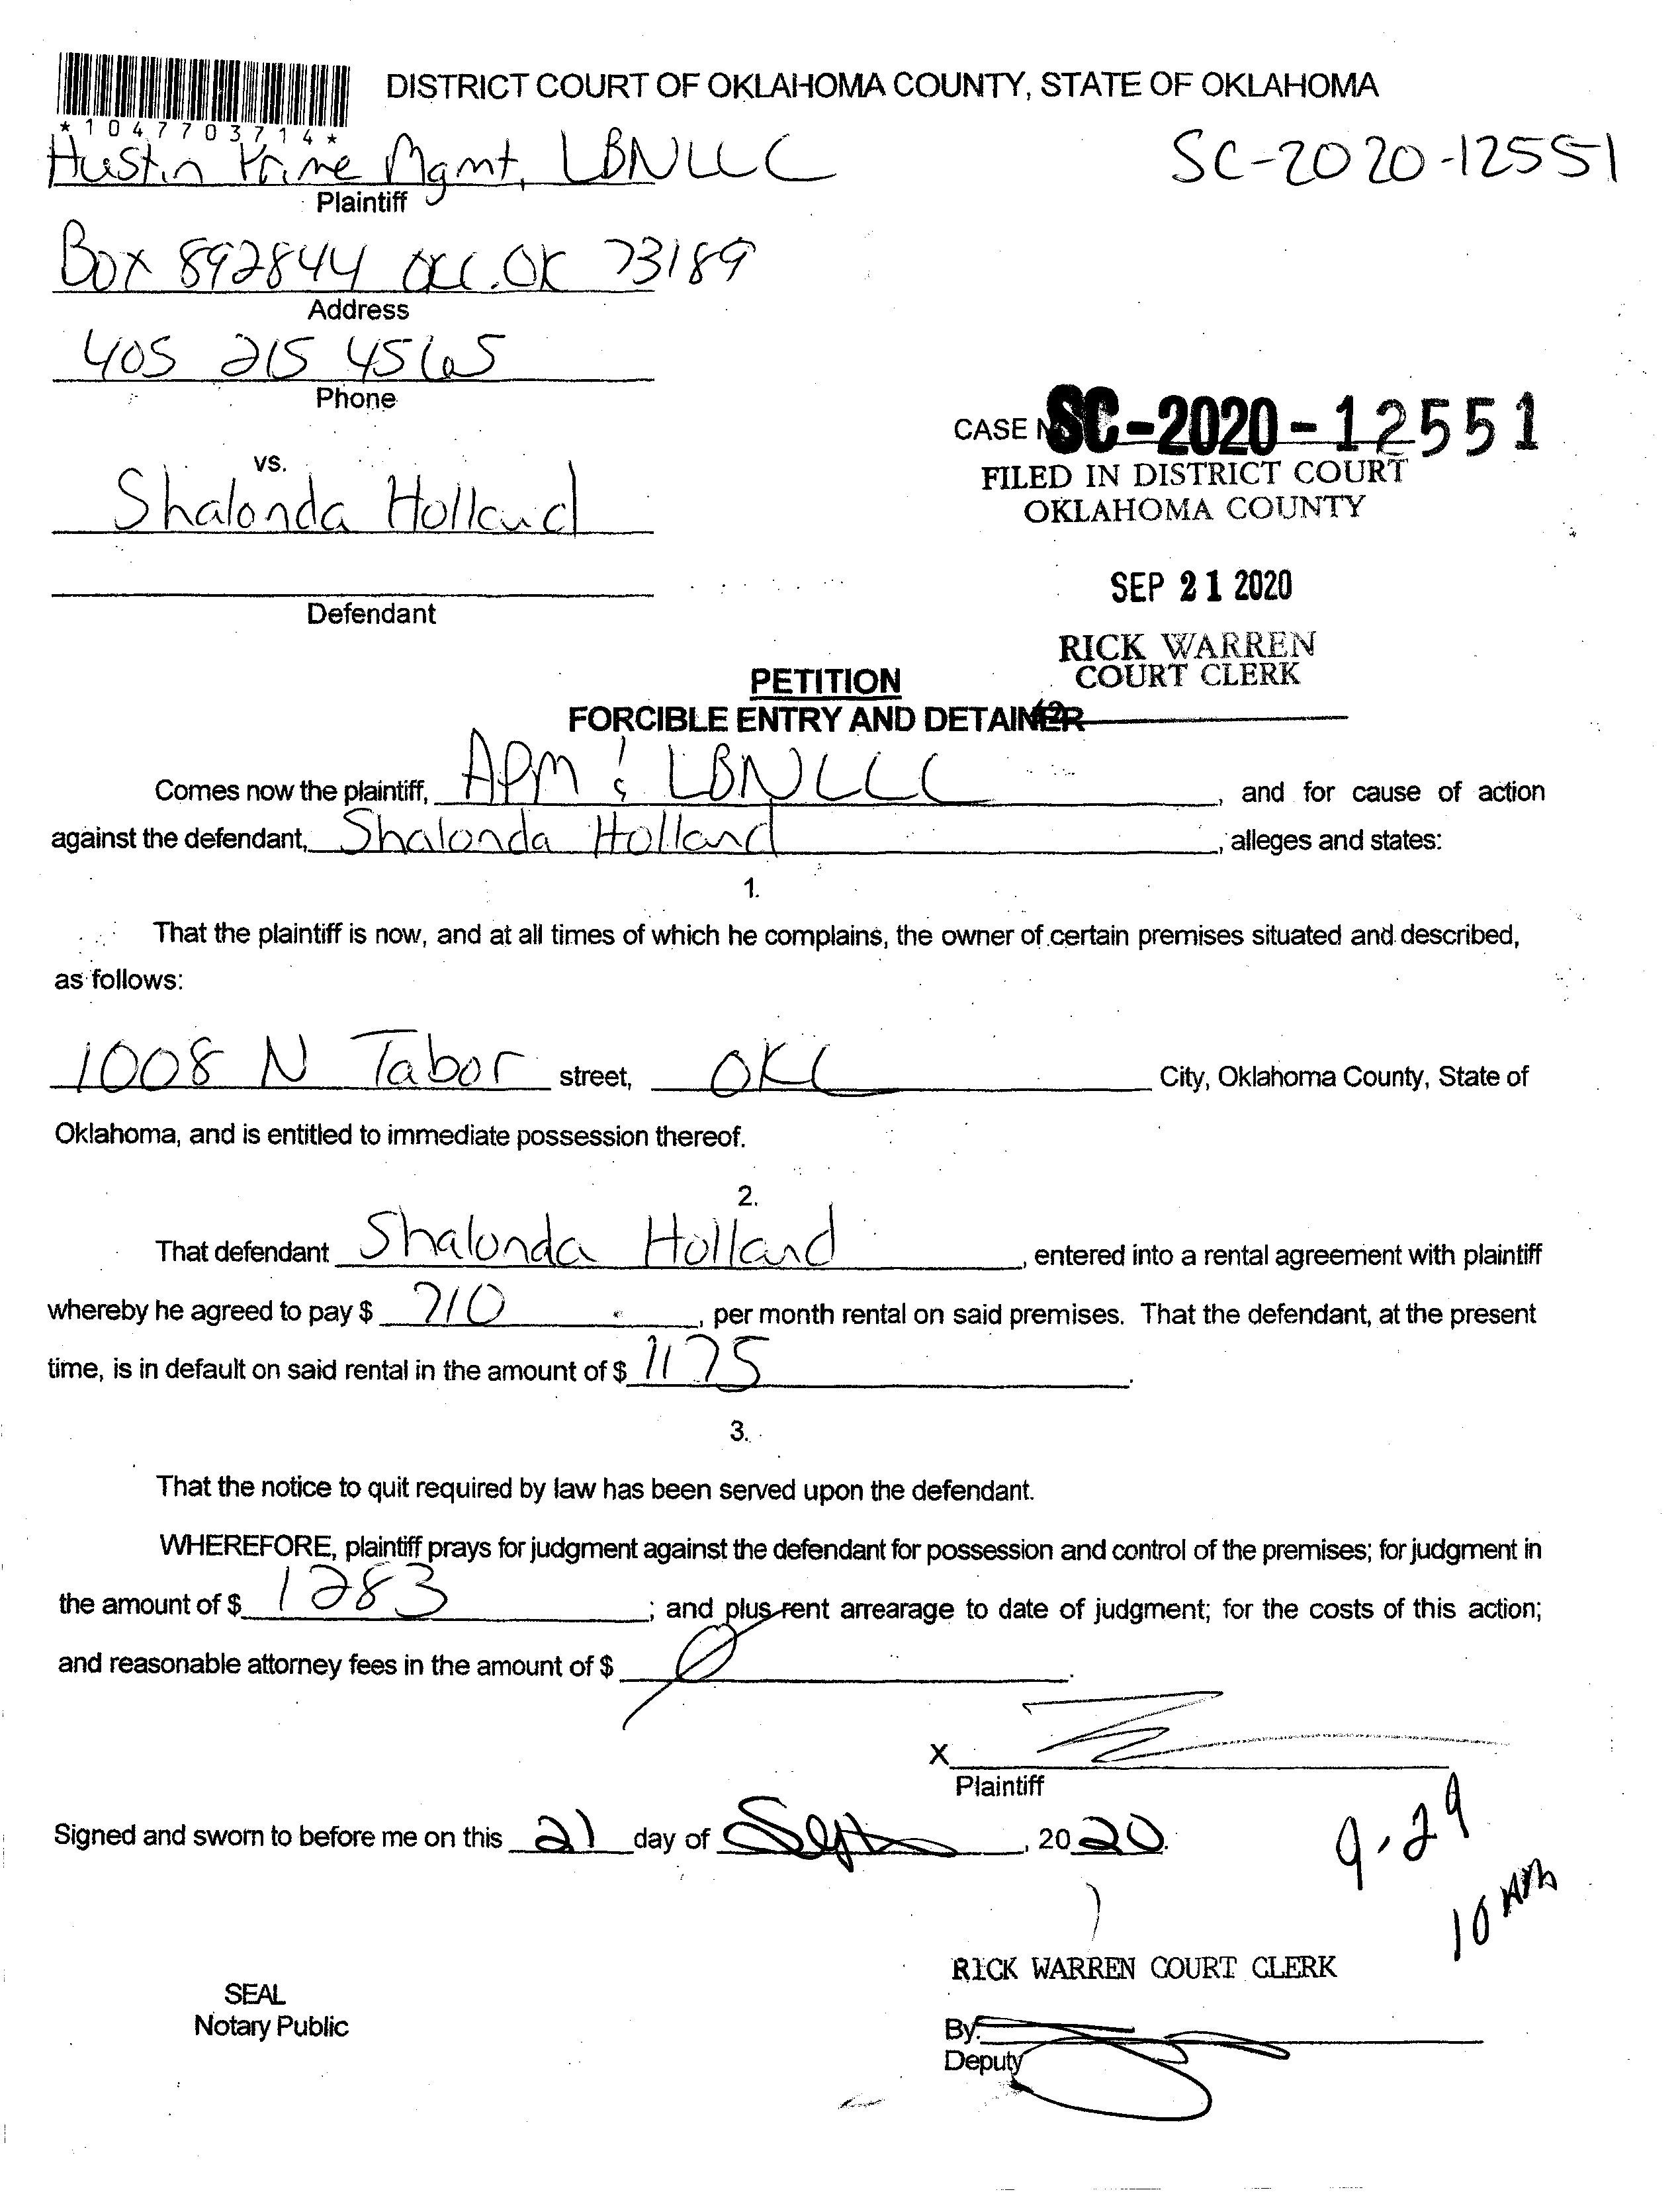 DISTRICT COURT OF OKLAHOMA COUNTY, STATE OF OKLAHOMA
*1047703714*
Austin Prime Mgmt, LBNLLC
SC-2020-12551
Plaintiff
Box 892844 OKC.OK 73189
Address
405 215 4565
Phone
CASE N SC-2020-12551
FILED IN DISTRICT COURT
OKLAHOMA COUNTY
vs.
Shalonda Holland
SEP 21 2020
Defendant
RICK WARREN
COURT CLERK
PETITION
FORCIBLE ENTRY AND DETAINER
Comes now the plaintiff, APM & LBNLLC, and for cause of action
against the defendant, Shalonda Holland, alleges and states:
1.
That the plaintiff is now, and at all times of which he complains, the owner of certain premises situated and described,
as follows:
1008 N Tabor street, OKC City, Oklahoma County, State of
Oklahoma, and is entitled to immediate possession thereof.
2.
That defendant Shalonda Holland, entered into a rental agreement with plaintiff
whereby he agreed to pay $ 710, per month rental on said premises. That the defendant, at the present
time, is in default on said rental in the amount of $ 1175.
3.
That the notice to quit required by law has been served upon the defendant.
WHEREFORE, plaintiff prays for judgment against the defendant for possession and control of the premises; for judgment in
the amount of $ 1283; and plus rent arrearage to date of judgment; for the costs of this action;
and reasonable attorney fees in the amount of $ 0.
X
Plaintiff
Signed and sworn to before me on this 21 day of Sept, 2020.
9.29
10 AM
RICK WARREN COURT CLERK
SEAL
Notary Public
By:
Deputy